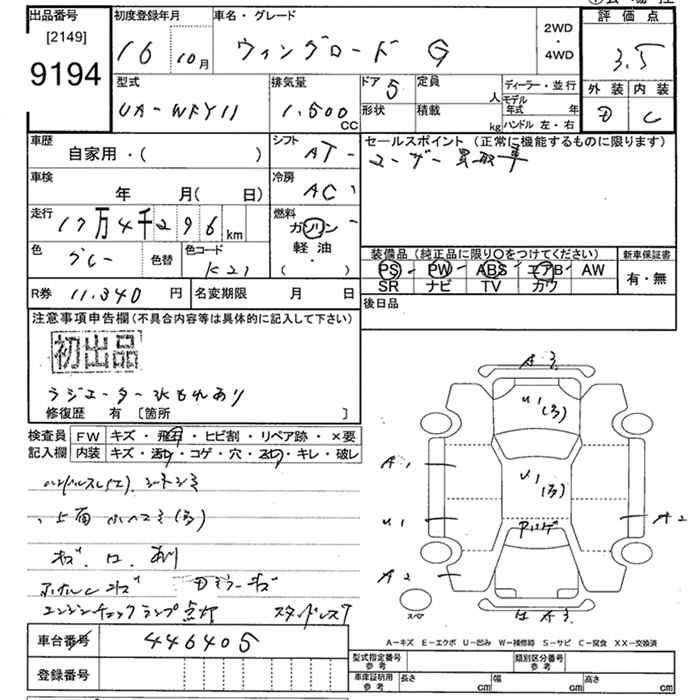 出品番号 初度登録年月 車名・グレード 評価点
[2149]
9194
16 10月 ウィングロード G 2WD・4WD 3.5
型式 排気量 ドア 5 定員 人 ディーラー・並行 外装 内装
UA-WFY11 1,500 CC 形状 積載 kg モデル年式 年 ハンドル 左・右 D C
車歴 自家用・( ) シフト AT セールスポイント (正常に機能するものに限ります)
ユーザー買取車
車検 年 月( 日) 冷房 AC
走行 17万4千296km 燃料 ガソリン・軽油・( )
色 グレー 色替 色コード K21
装備品 (純正品に限り○をつけてください) 新車保証書
PS・PW・ABS・エアB・AW 有・無
SR ナビ TV カワ
R券 11,340円 名変期限 月 日 後日品
注意事項申告欄 (不具合内容等は具体的に記入して下さい)
初出品
ラジエーター水もれあり
修復歴 有 [箇所 ]
検査員 FW キズ・飛石・ヒビ割・リペア跡・×要
記入欄 内装 キズ・コゲ・穴・キレ・破レ
キズ、ロ、あり
Dミラーキズ
エンジンチェックランプ点灯 スタッドレス7
A3
U1
(多)
U1
(多)
A1
U1
A2
A2
スペア
A3
A-キズ E-エクボ U-凹み W-補修跡 S-サビ C-腐食 XX-交換済
車台番号 446405
登録番号
型式指定番号 参考 類別区分番号 参考
車庫証明用 参考 長さ cm 幅 cm 高さ cm